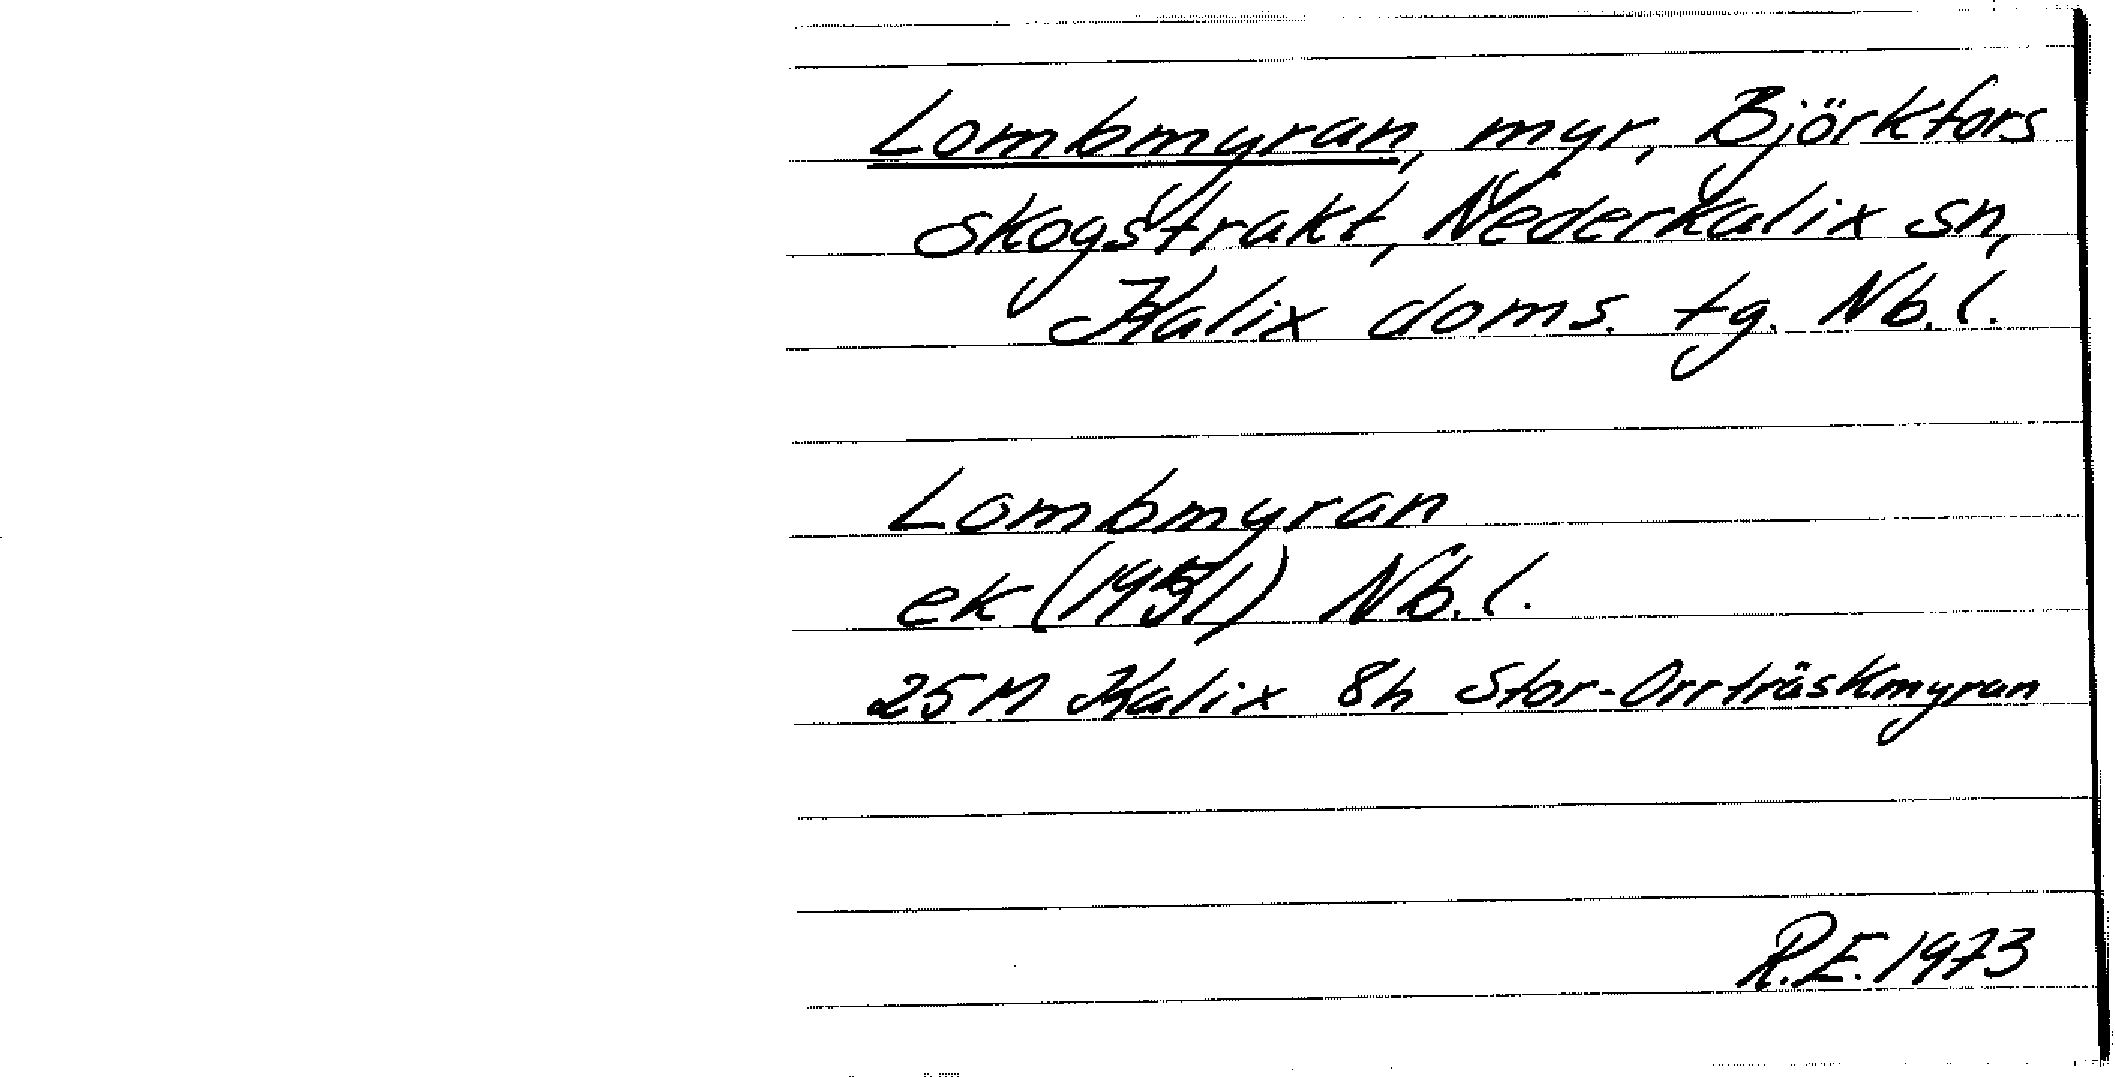 Lombmyran, myr, Björkfors
skogstrakt, Nederkalix sn,
Kalix doms. tg. Nb.l.
Lombmyran
ek (1951) Nb.l.
25M Kalix 8h Stor-Orrträskmyran
R.E. 1973